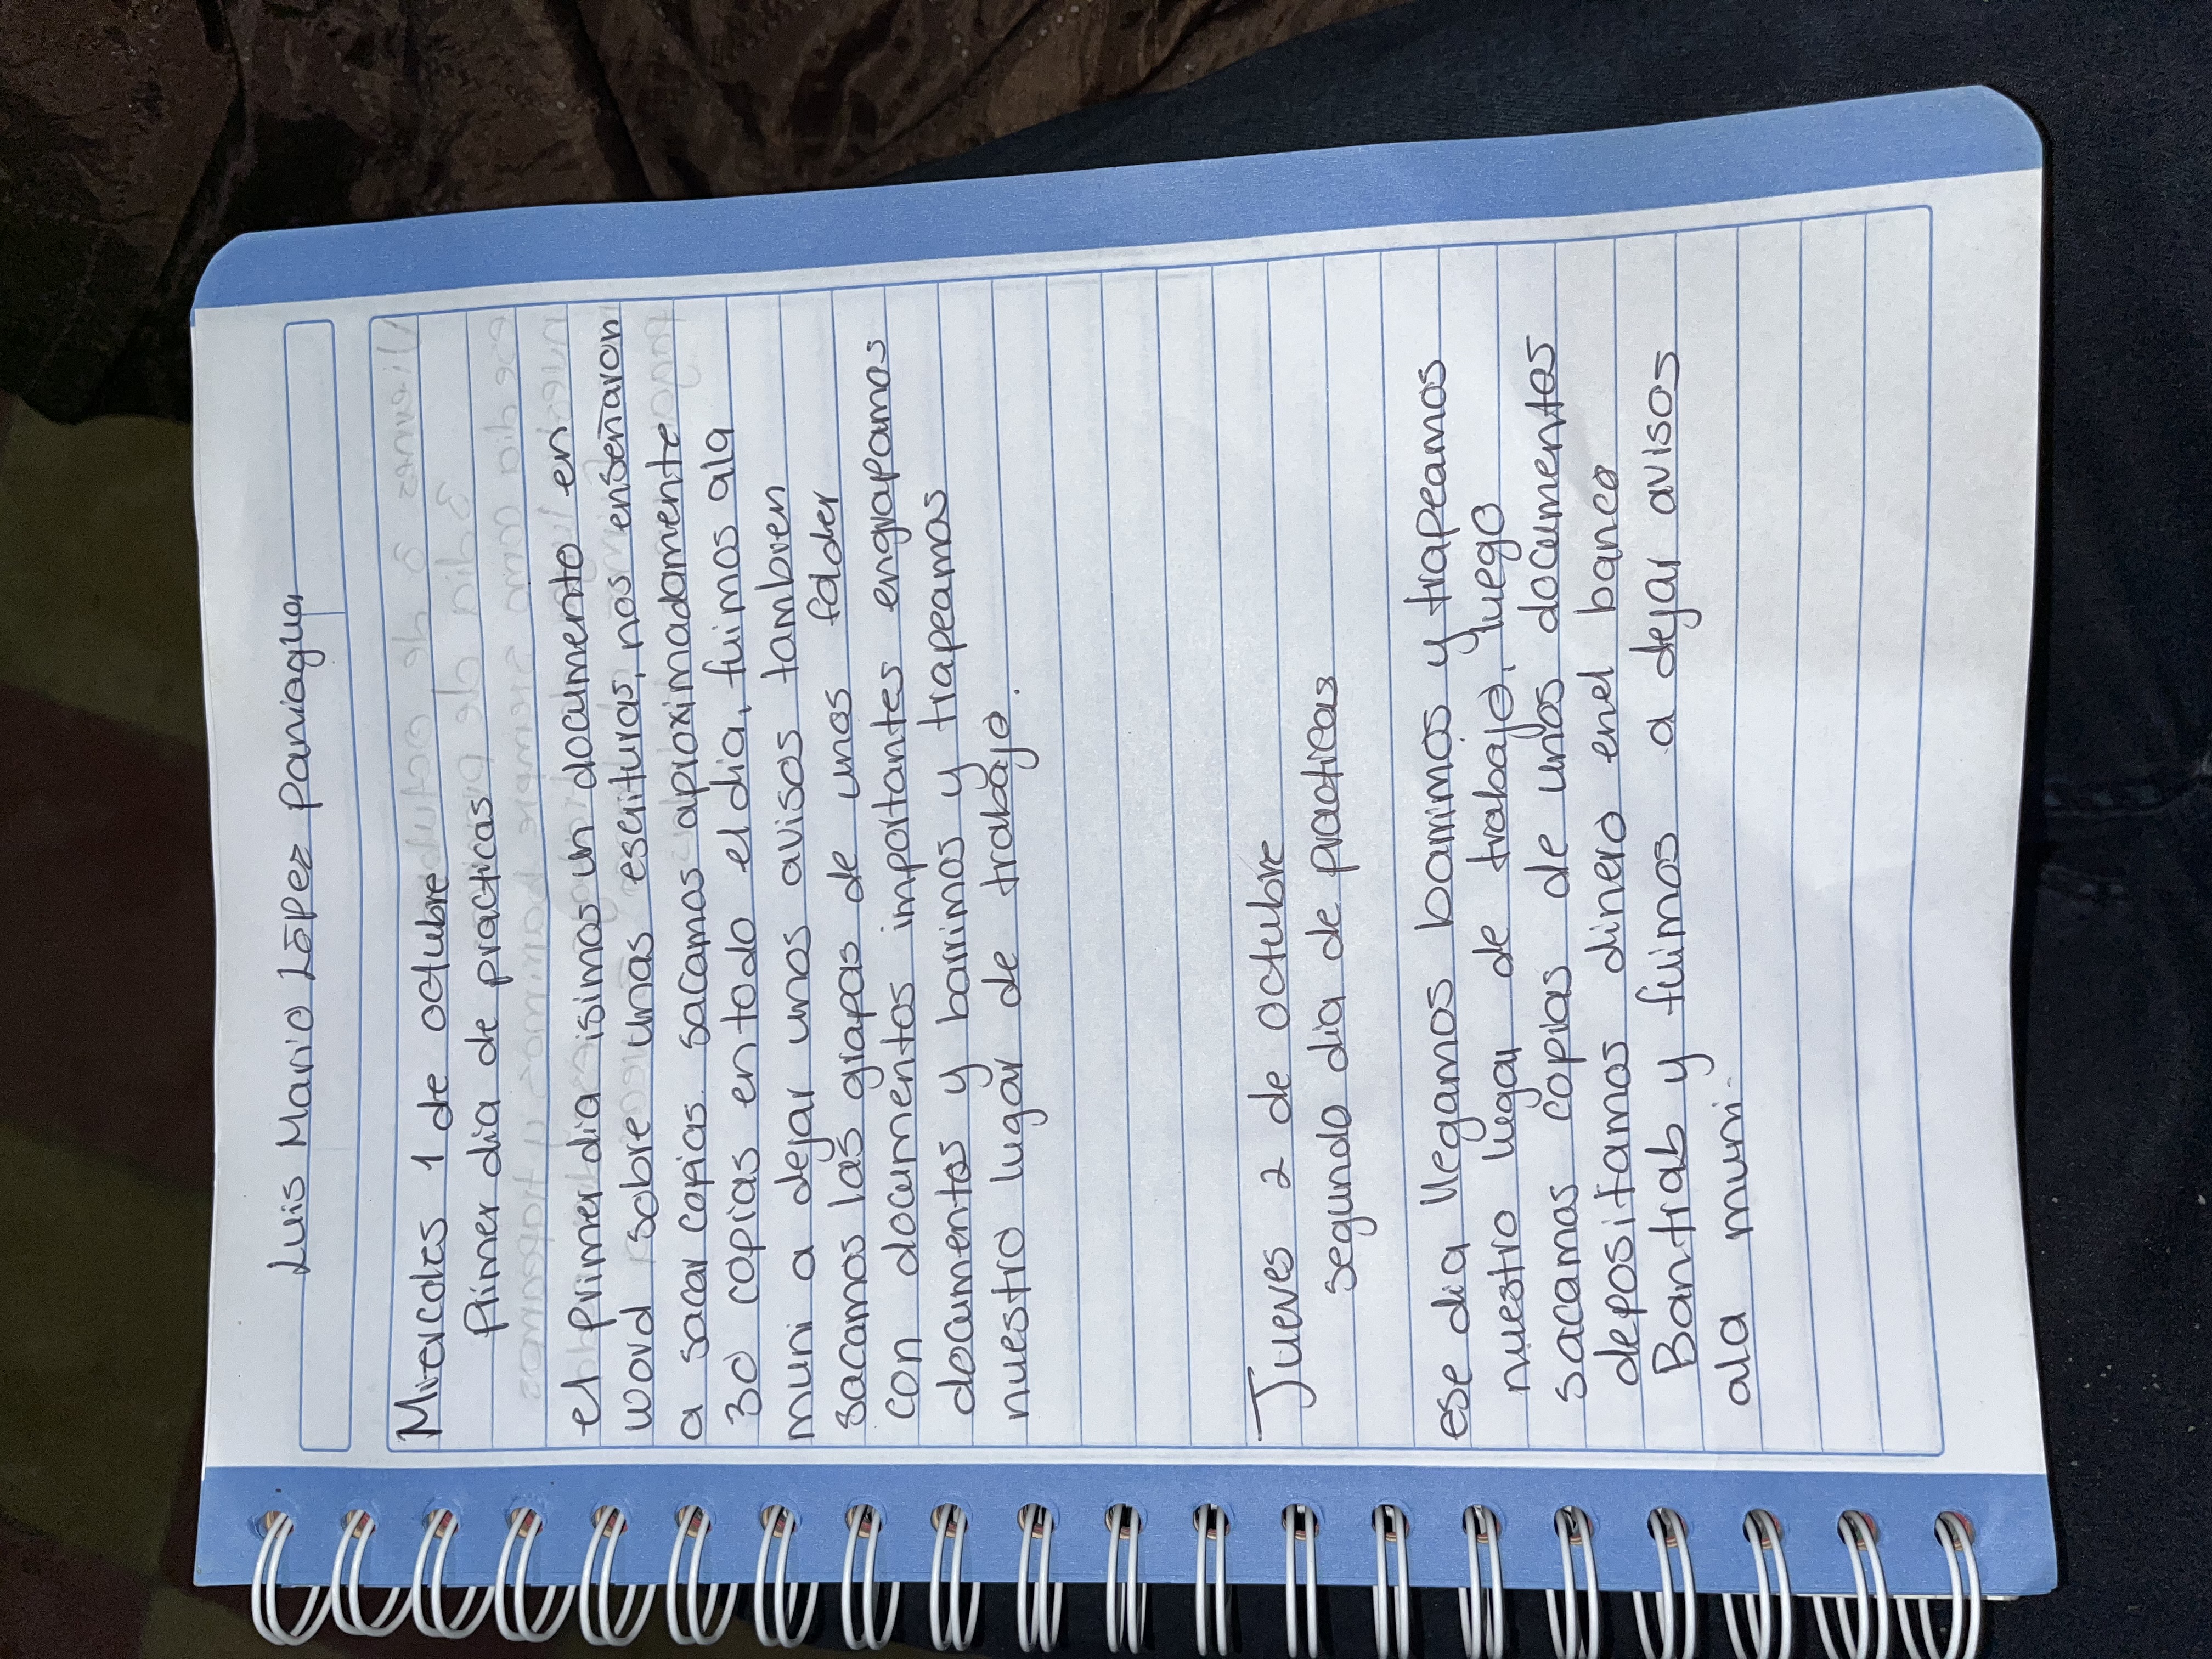 Luis Mario López paniagua
Miercoles 1 de octubre
Primer dia de practicas
el primer dia isimos un documento en
word sobre unas escrituras, nos enseñaron
a sacar copias. sacamos aproximadamente
30 copias en todo el dia, fuimos ala
muni a dejar unos avisos tambien
sacamos las grapas de unos folder
con documentos importantes engrapamos
documentos y barrimos y trapeamos
nuestro lugar de trabajo.
Jueves 2 de octubre
segundo dia de practicas
ese dia llegamos barrimos y trapeamos
nuestro lugar de trabajo, luego
sacamos copias de unos documentos
depositamos dinero en el banco
Bantrab y fuimos a dejar avisos
ala muni.